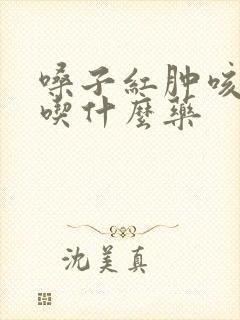 嗓子紅肿咳
喫什麼藥
沈美真